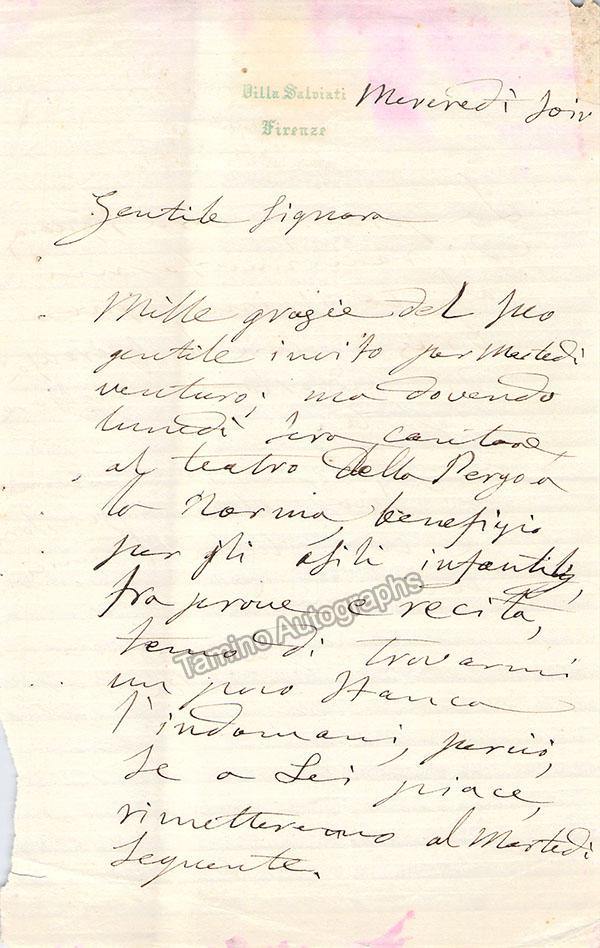 Villa Salviati
Firenze
Mercredì soir
Gentile Signora
Mille grazie del suo
gentile invito per Martedì
venturo; ma dovendo
lunedì sera cantare
al teatro della Pergola
la Norma, benefizio
per gli asili infantili,
tra prove e recita,
temo di trovarmi
un poco stanca
l'indomani, perciò,
se a Lei piace,
rimetteremo al Martedì
seguente.
Tamino Autographs